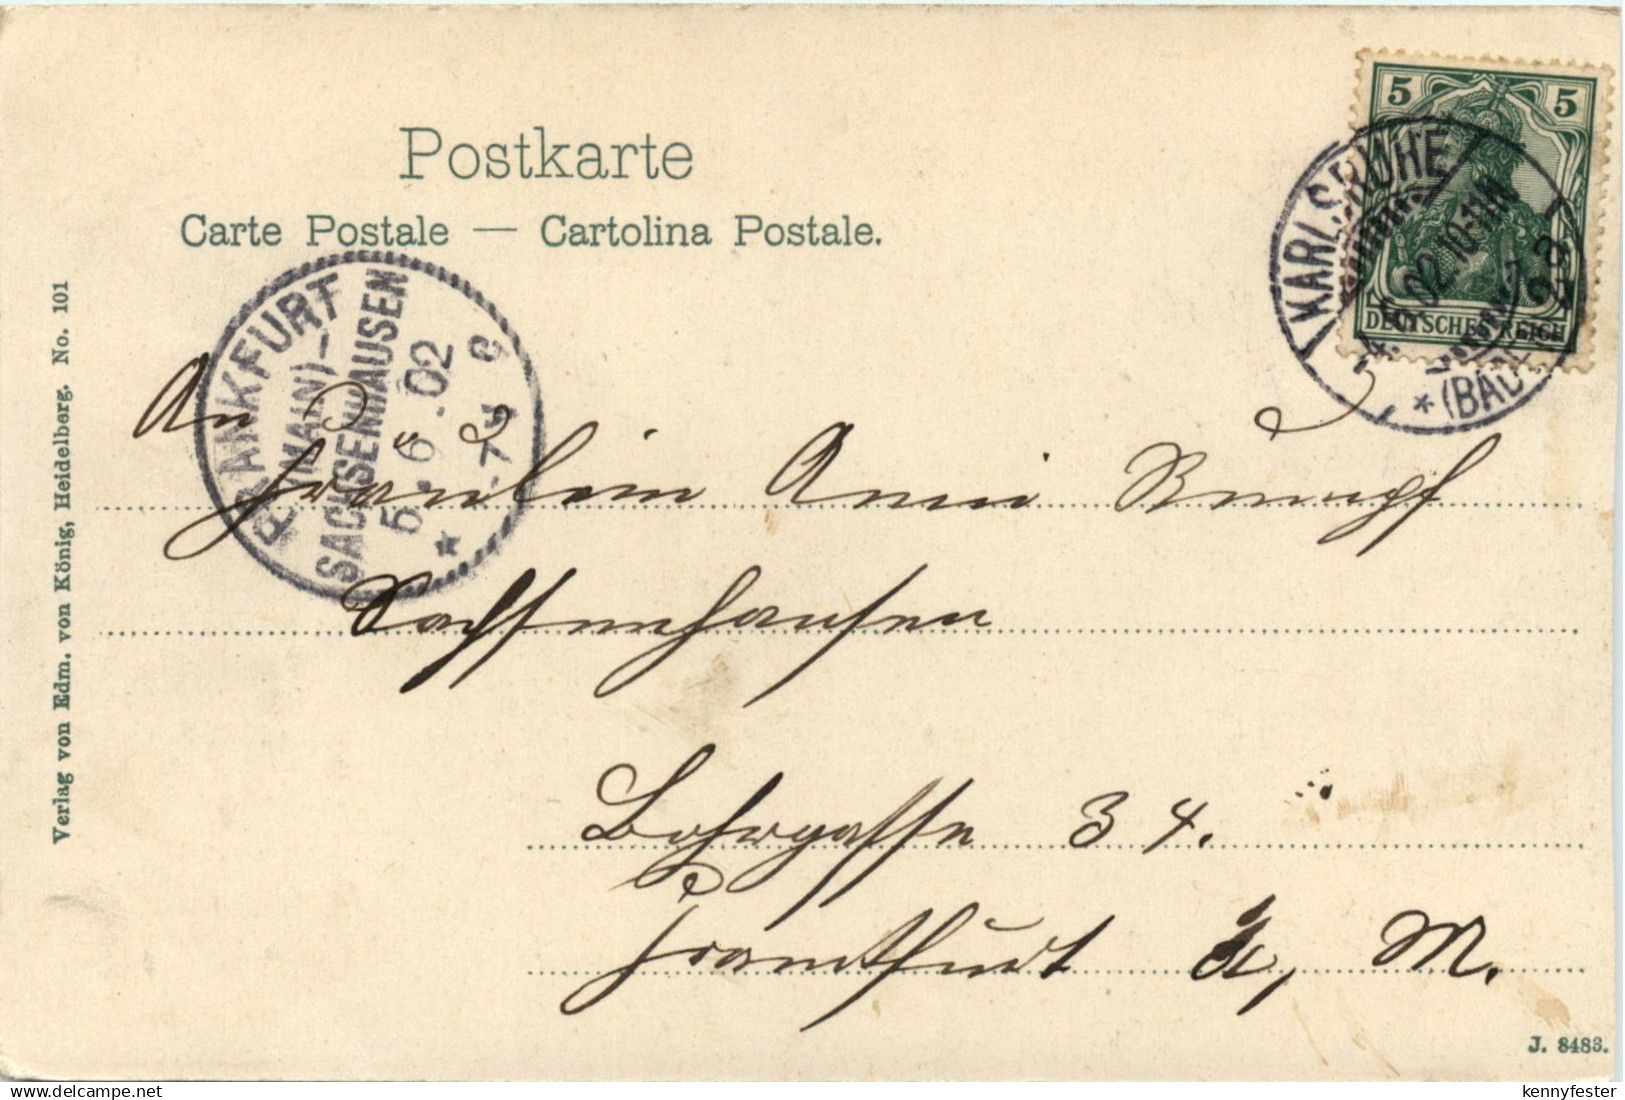 Postkarte
Carte Postale — Cartolina Postale.
5 5
DEUTSCHES REICH
KARLSRUHE
4.6.02.10-11N
(BADEN)
FRANKFURT
(MAIN)-
SACHSENHAUSEN
5.6.02
7-
*
Verlag von Edm. von König, Heidelberg. No. 101
An
Fräulein Anni Rumpf
Sachsenhausen
Lohrgasse 34.
Frankfurt a, M.
J. 8483.
kennyfester